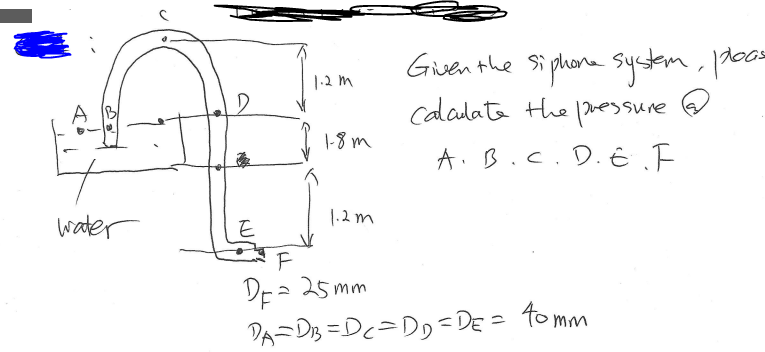 C
A B D
1.2 m
1.8 m
1.2 m
water
E
F
Given the siphone system,
calculate the pressure @
A. B. C. D. E. F
D_F = 25 mm
D_A = D_B = D_C = D_D = D_E = 40 mm